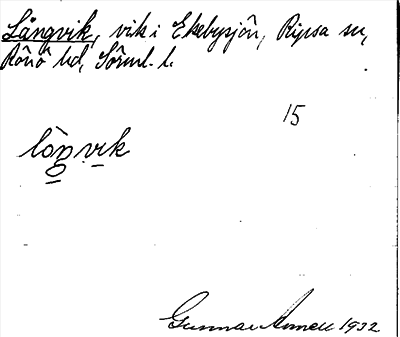 Långvik, vik i Ekebysjön, Ripsa sn,
Rönö hd, Södml. l.
15
lòŋvik
Gunnar Annell 1932